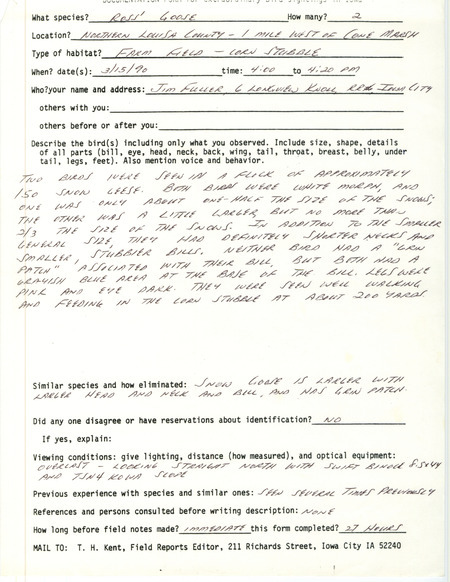 What species? Ross' Goose How many? 2
Location? Northern Louisa County - 1 mile west of Cone Marsh
Type of habitat? Farm Field - corn stubble
When? date(s): 3/15/90 time: 4:00 to 4:20 pm
Who?your name and address: Jim Fuller, 6 Longview Knoll, RR#6 Iowa City
others with you:
others before or after you:
Describe the bird(s) including only what you observed. Include size, shape, details
of all parts (bill, eye, head, neck, back, wing, tail, throat, breast, belly, under
tail, legs, feet). Also mention voice and behavior.
Two birds were seen in a flock of approximately
150 snow geese. Both birds were white morph, and
one was only about one-half the size of the snows;
the other was a little larger, but no more than
2/3 the size of the snows. In addition to the smaller
general size, they had definitely shorter necks and
smaller, stubbier bills. Neither bird had a "grin
patch" associated with their bill, but both had a
grayish blue area at the base of the bill. Legs were
pink and eye dark. They were seen well walking
and feeding in the corn stubble at about 200 yards.
Similar species and how eliminated: Snow Goose is larger with
larger head and neck and bill, and has grin patch
Did any one disagree or have reservations about identification? No
If yes, explain:
Viewing conditions: give lighting, distance (how measured), and optical equipment:
overcast - looking straight north with Swift binoc 8.5x44
and TSN4 Kowa scope
Previous experience with species and similar ones: seen several times previously
References and persons consulted before writing description: none
How long before field notes made? immediate this form completed? 27 hours
MAIL TO: T. H. Kent, Field Reports Editor, 211 Richards Street, Iowa City IA 52240